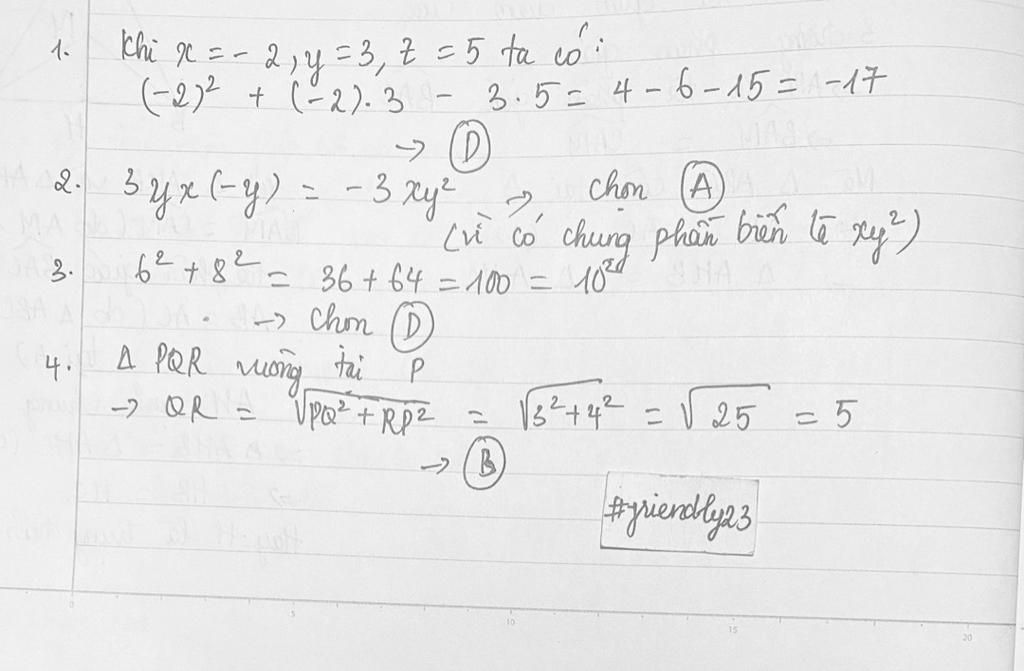 1. Khi x = - 2, y = 3, z = 5 ta có:
(-2)² + (-2). 3 - 3 . 5 = 4 - 6 - 15 = -17
→ D
2. 3 y x (-y) = - 3 xy² → chọn A
(vì có chung phần biến là xy²)
3. 6² + 8² = 36 + 64 = 100 = 10²
→ Chọn D
4. Δ PQR vuông tại P
→ QR = √PQ² + RP² = √3² + 4² = √25 = 5
→ B
#friendly23
0 5 10 15 20